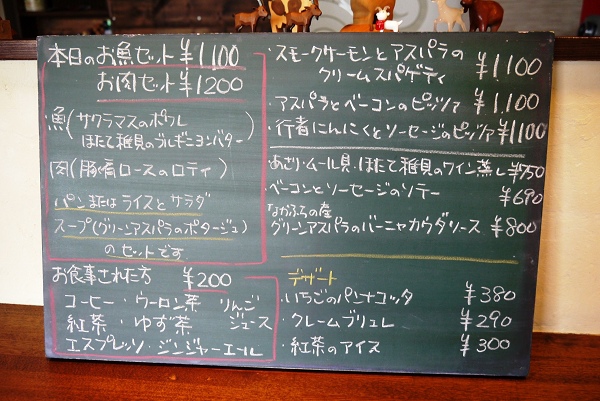 本日のお魚セット ¥1,100
お肉セット ¥1200
魚(サクラマスのポワレ
ほたて稚貝のブルギニヨンバター)
肉(豚肩ロースのロティ)
パンまたはライスとサラダ
スープ(グリーンアスパラのポタージュ)
のセットです
お食事された方 ¥200
コーヒー・ウーロン茶 りんごジュース
紅茶・ゆず茶
エスプレッソ・ジンジャーエール
・スモークサーモンとアスパラの
クリームスパゲティ ¥1,100
・アスパラとベーコンのピッツァ ¥1,100
・行者にんにくとソーセージのピッツァ ¥1100
・あさり・ムール貝・ほたて稚貝のワイン蒸し ¥750
・ベーコンとソーセージのソテー ¥690
なかふらの産
グリーンアスパラのバーニャカウダソース ¥800
デザート
・いちごのパンナコッタ ¥380
・クレームブリュレ ¥290
・紅茶のアイス ¥300